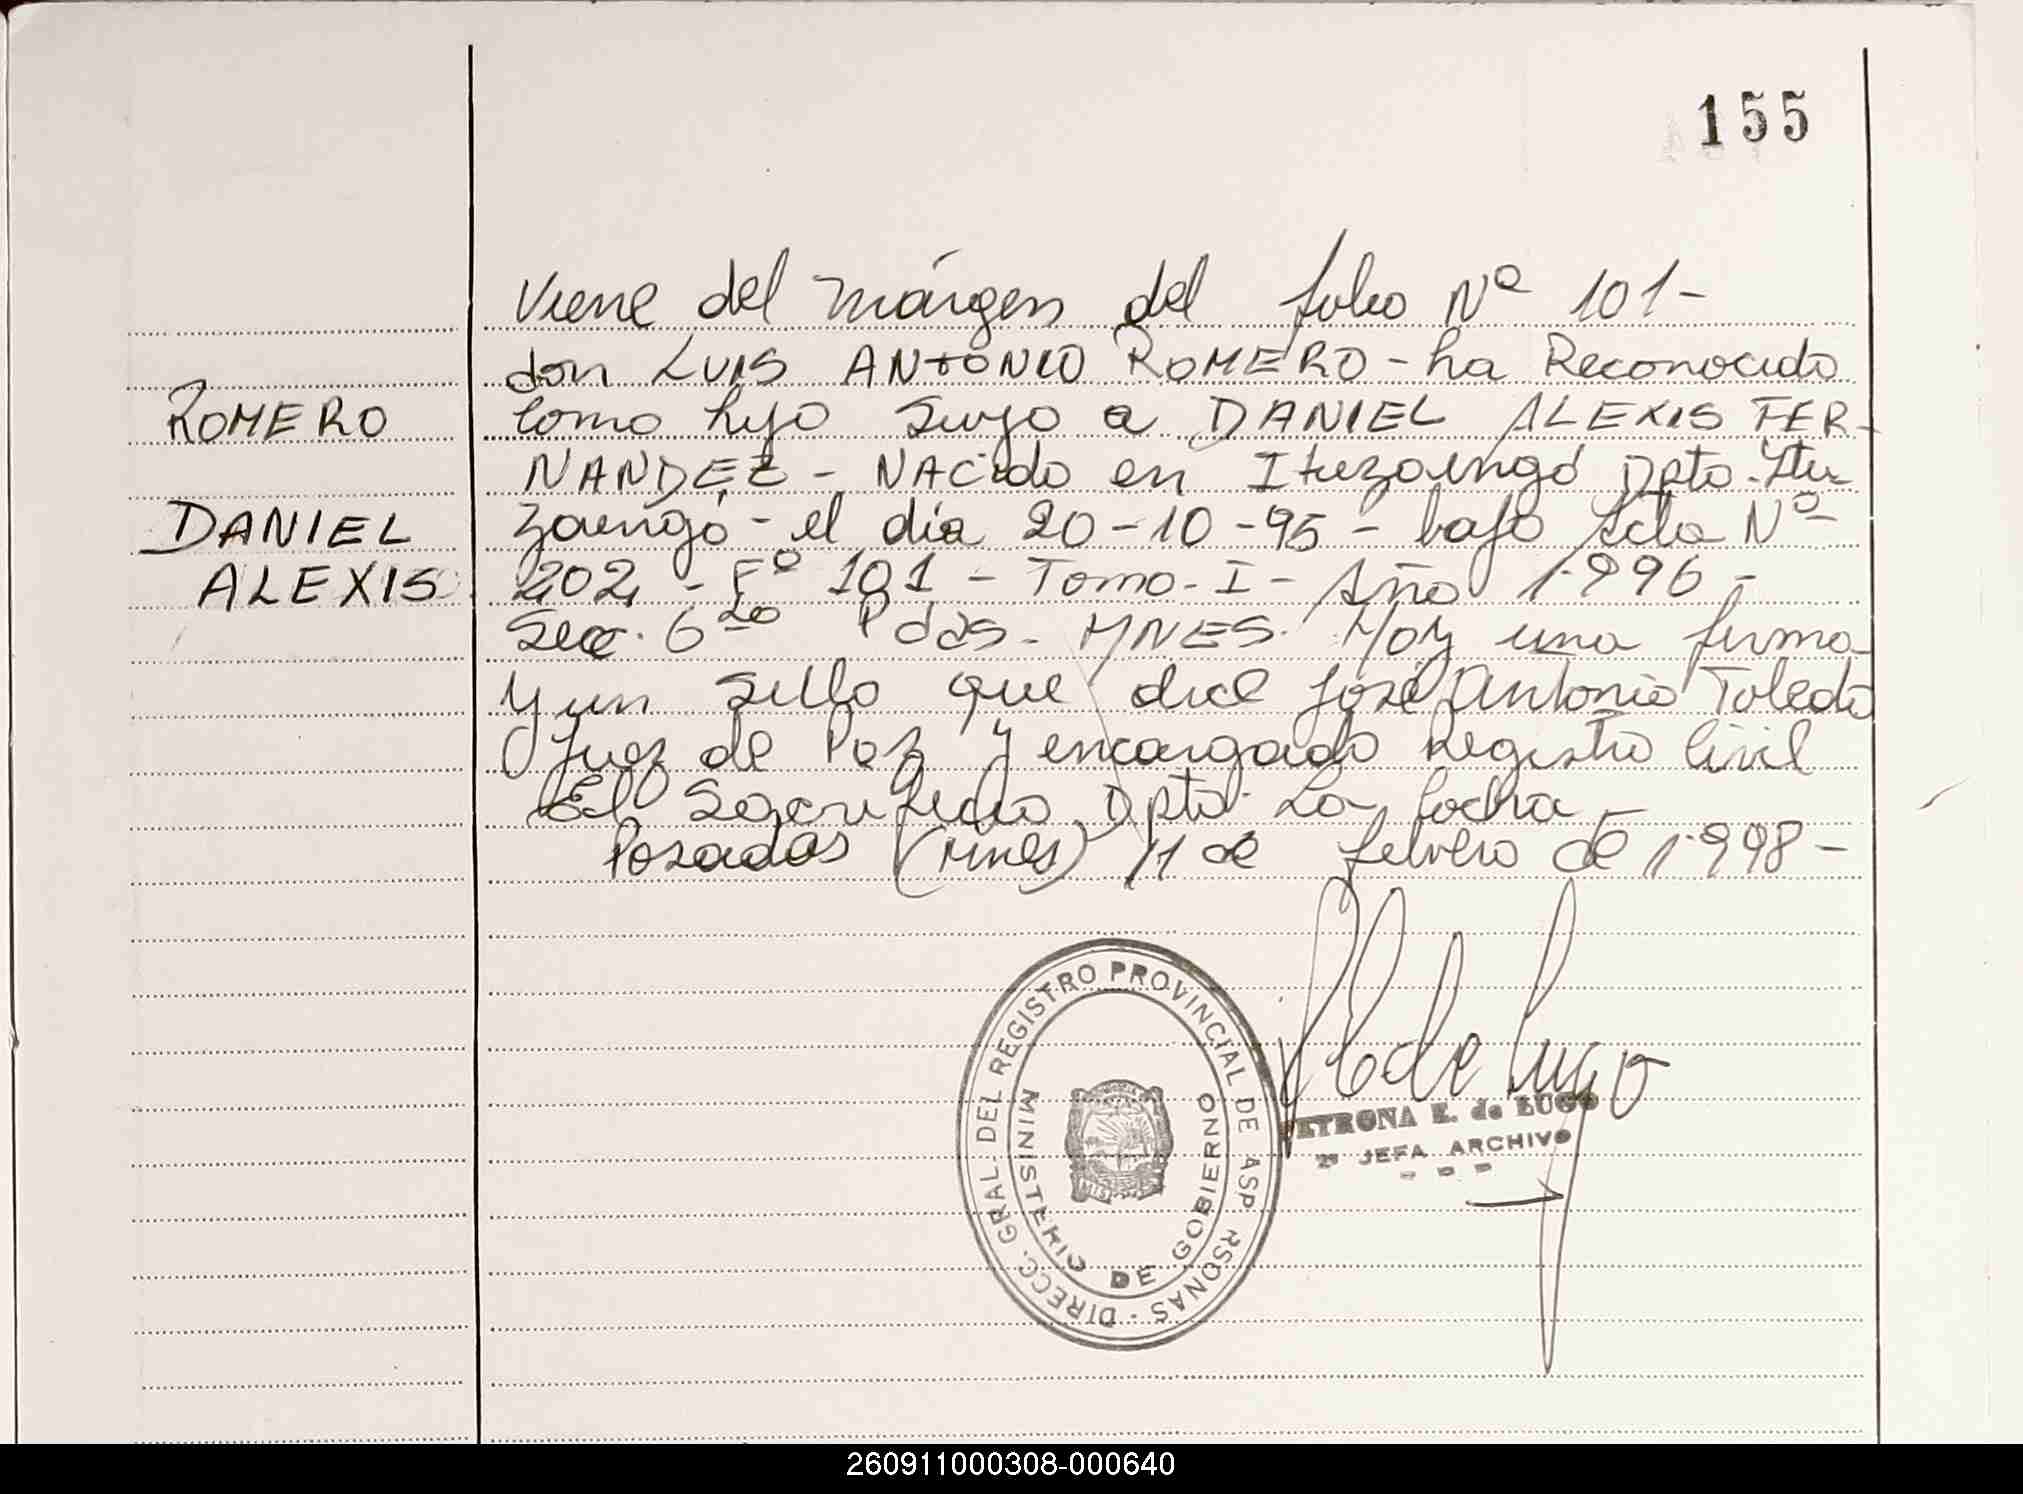 155
Viene del márgen del folio Nº 101-
don LUIS ANTONIO ROMERO - ha Reconocido
ROMERO
como hijo suyo a DANIEL ALEXIS FER-
NANDEZ - NACido en Ituzaingó Dpto. Itu
DANIEL
zaingó - el día 20-10-95 - bajo Acta Nº
ALEXIS
202 - Fº 101 - Tomo - I - Año 1.996 -
Secc. 6 Pdas - MNES. Hay una firma
y un sello que dice José Antonio Toledo
Juez de Paz y encargado Registro Civil
El Dpto. -
Posadas (Mnes) 11 de febrero de 1.998 -
DIRECC. GRAL. DEL REGISTRO PROVINCIAL DE ASP RSONAS -
MINISTERIO DE GOBIERNO
de Lugo
PETRONA E. de LUGO
2ª JEFA ARCHIVO
260911000308-000640